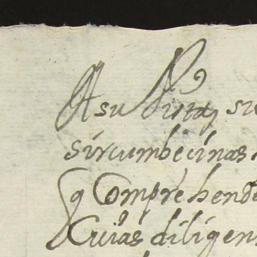 A su Vista, su
circumbecinas
q Comprehende
Cuias diligen